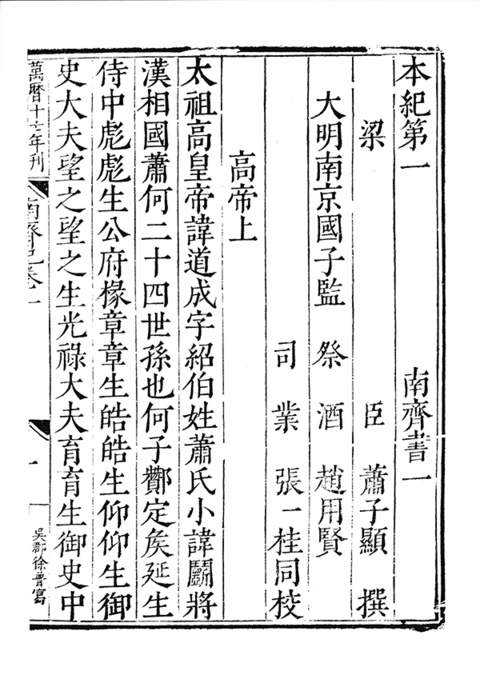 本紀第一　南齊書一
梁　臣蕭子顯撰
大明南京國子監祭酒趙用賢
司業張一桂同校
高帝上
太祖高皇帝諱道成字紹伯姓蕭氏小諱鬭將
漢相國蕭何二十四世孫也何子酇定矦延生
侍中彪彪生公府掾章章生皓皓生仰仰生御
史大夫望之望之生光祿大夫育育生御史中
萬曆十七年刊
南齊紀卷一
一
吳郡徐普寫